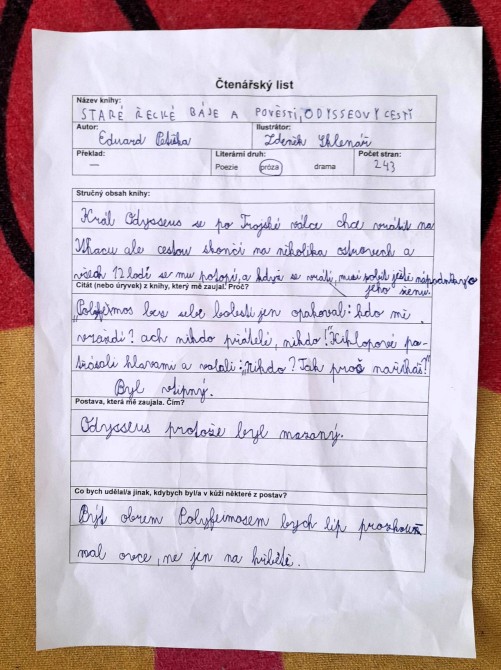 Čtenářský list
Název knihy:
STARÉ ŘECKÉ BÁJE A POVĚSTI, ODYSSEOVY CESTY
Autor:
Eduard Petiška
Ilustrátor:
Zdeněk Sklenář
Překlad:
—
Literární druh:
Poezie próza drama
Počet stran:
243
Stručný obsah knihy:
Král Odysseus se po Trojské válce chce vrátit na
Ithacu ale cestou skončí na několika ostrovech a
všech 12 lodí se mu potopí, a když se vrátí, musí pobít ještě nápadníky o
jeho ženu.
Citát (nebo úryvek) z knihy, který mě zaujal. Proč?
„Polyfémos bez sebe bolestí jen opakoval: kdo mi
vraždí? ach nikdo přátelé, nikdo!" Kiklopové po-
třásali hlavami a volali: „Nikdo? Tak proč naříkáš?"
Byl vtipný.
Postava, která mě zaujala. Čím?
Odysseus protože byl mazaný.
Co bych udělal/a jinak, kdybych byl/a v kůži některé z postav?
Být obrem Polyfémosem bych líp prozkoum
mal ovce, ne jen na hřbětě.